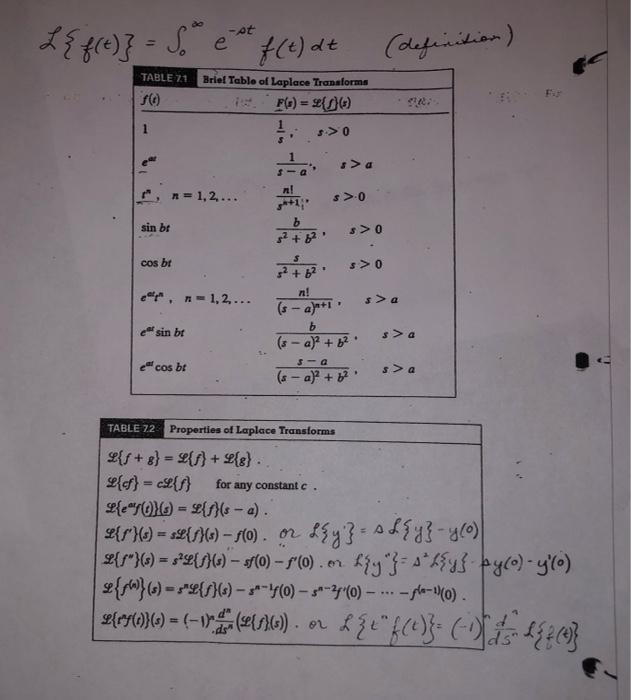 ℒ{f(t)} = ∫₀^∞ e^(-st) f(t) dt (definition)
TABLE 7.1 Brief Table of Laplace Transforms
f(t) F(s) = ℒ{f}(s)
1 1/s, s > 0
e^(at) 1/(s − a), s > a
t^n, n = 1, 2, ... n!/s^(n+1), s > 0
sin bt b/(s² + b²), s > 0
cos bt s/(s² + b²), s > 0
e^(at)t^n, n = 1, 2, ... n!/(s − a)^(n+1), s > a
e^(at) sin bt b/((s − a)² + b²), s > a
e^(at) cos bt (s − a)/((s − a)² + b²), s > a
TABLE 7.2 Properties of Laplace Transforms
ℒ{f + g} = ℒ{f} + ℒ{g}.
ℒ{cf} = cℒ{f} for any constant c.
ℒ{e^(at)f(t)}(s) = ℒ{f}(s − a).
ℒ{f'}(s) = sℒ{f}(s) − f(0). or ℒ{y'} = sℒ{y} - y(0)
ℒ{f''}(s) = s²ℒ{f}(s) − sf(0) − f'(0). or ℒ{y''} = s²ℒ{y} - sy(0) - y'(0)
ℒ{f^(n)}(s) = s^nℒ{f}(s) − s^(n−1)f(0) − s^(n−2)f'(0) − ··· − f^(n−1)(0).
ℒ{t^n f(t)}(s) = (−1)^n d^n/ds^n (ℒ{f}(s)). or ℒ{t^n f(t)} = (-1)^n d^n/ds^n ℒ{f(t)}